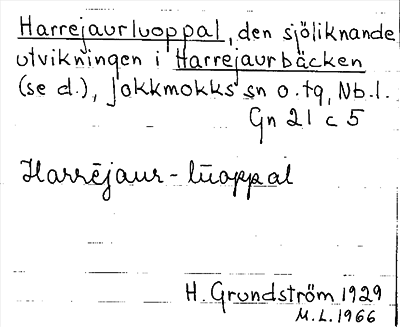 Harrejaurluoppal, den sjöliknande
utvikningen i Harrejaurbäcken
(se d.), Jokkmokks sn o. tg, Nb. l.
Gn 21 c 5
Harrējaur-lūoppal
H. Grundström 1929
M.L. 1966